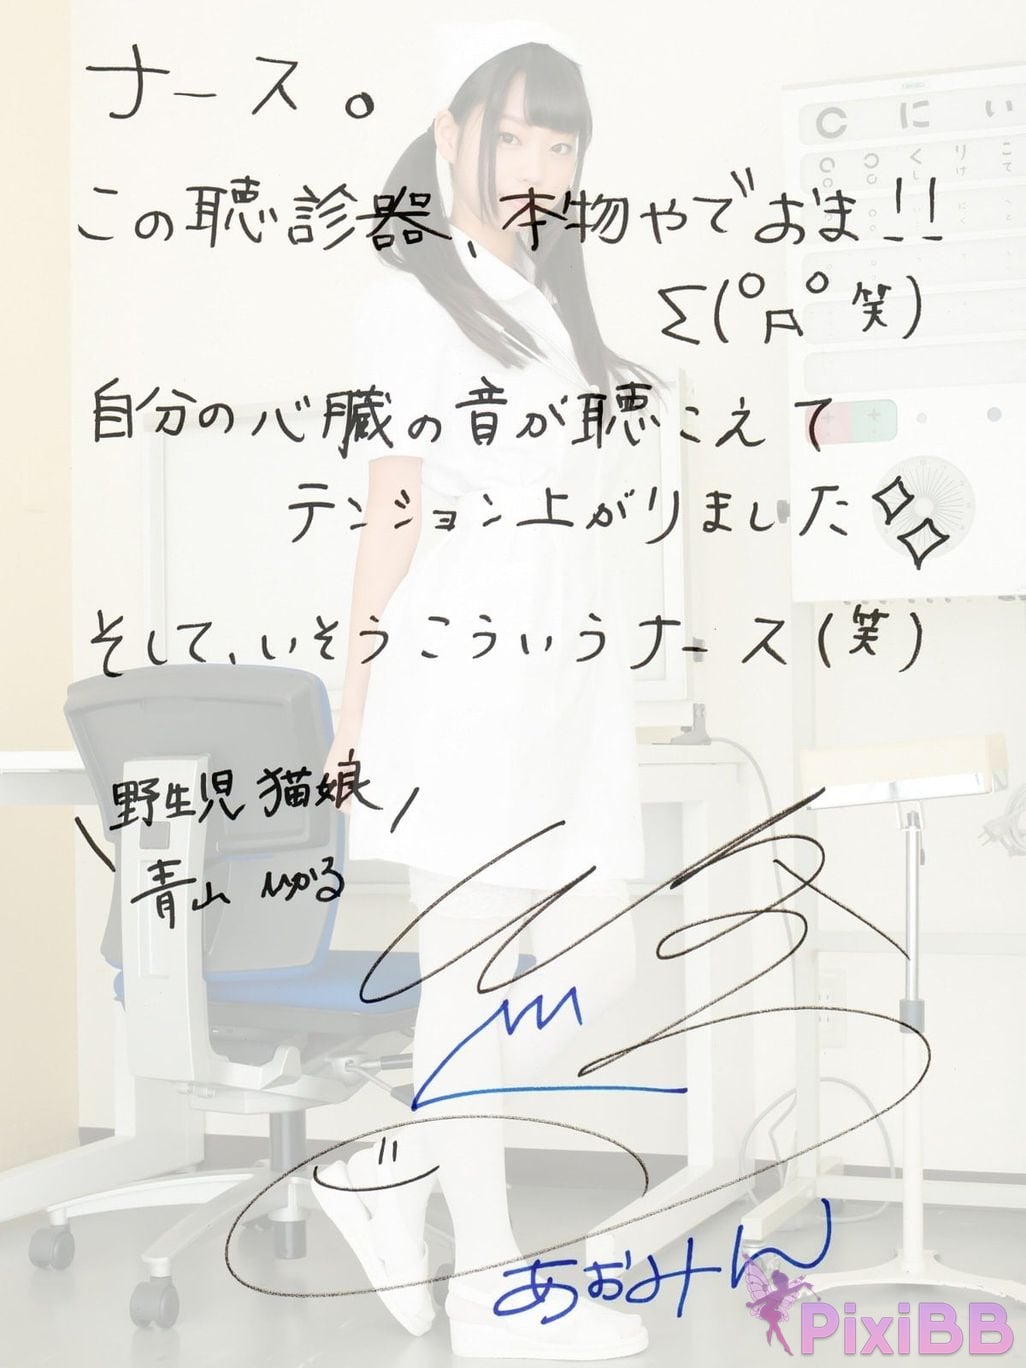 ナース。
この聴診器、本物やでおま!!
Σ(°Д° 笑)
自分の心臓の音が聴こえて
テンション上がりました
そして、いそうこういうナース(笑)
\野生児 猫娘/
青山 ひかる
あおみん
C に い
PixiBB